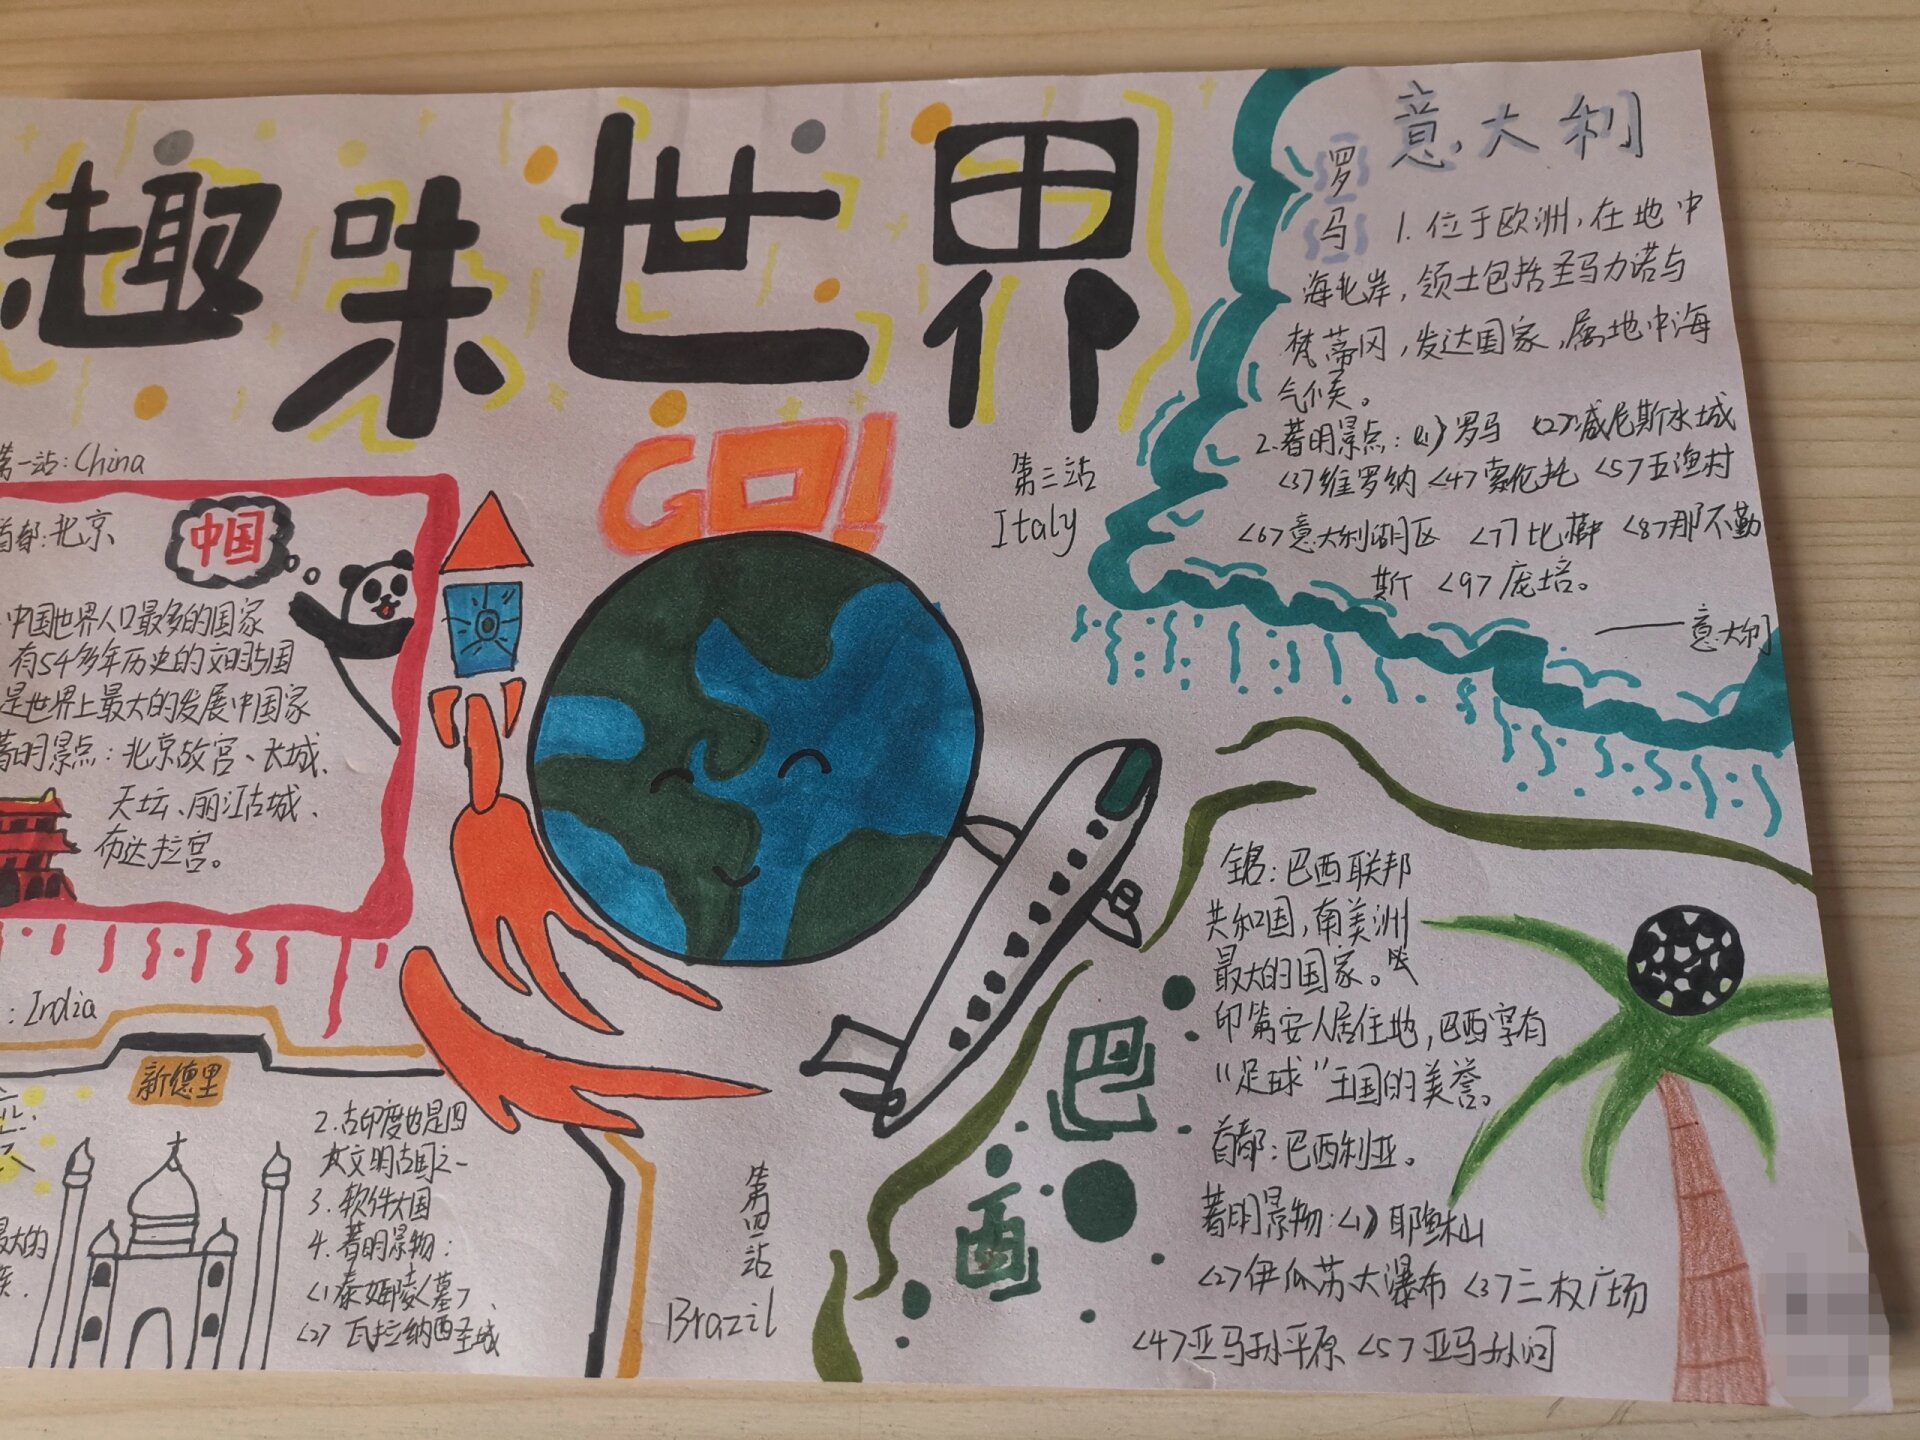 趣味世界
GO!
第一站：China
首都：北京
中国
中国世界人口最多的国家
有54多年历史的文明古国
是世界上最大的发展中国家
著明景点：北京故宫、长城、
天坛、丽江古城、
布达拉宫。
：India
新德里
最大的
2.古印度也是四
大文明古国之一
3.软件大国
4.著明景物：
<1>泰姬陵(墓)、
<2>瓦拉纳西圣城
第三站
Italy
意大利
罗马
1.位于欧洲，在地中
海北岸，领土包括圣马力诺与
梵蒂冈，发达国家，属地中海
气候。
2.著明景点：<1>罗马 <2>威尼斯水城
<3>维罗纳 <4>索伦托 <5>五渔村
<6>意大利湖区 <7>比萨 <8>那不勒
斯 <9>庞培。
——意大利
第四站
Brazil
巴西
全名：巴西联邦
共和国，南美洲
最大的国家。
印第安人居住地，巴西享有
“足球”王国的美誉。
首都：巴西利亚。
著明景物：<1>耶稣山
<2>伊瓜苏大瀑布 <3>三权广场
<4>亚马孙平原 <5>亚马孙河